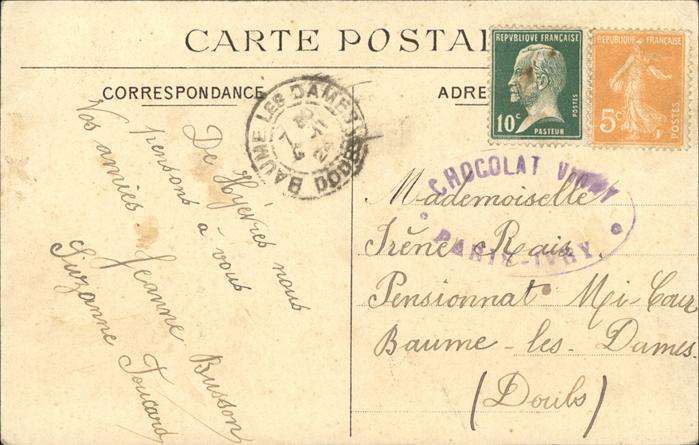 CARTE POSTAL
CORRESPONDANCE
ADRE
REPVBLIQVE FRANÇAISE
10c
POSTES
PASTEUR
REPUBLIQUE FRANÇAISE
5c
POSTES
BAUME LES DAMES DOUBS
CHOCOLAT VINAY
PARIS-IVRY
De Hyères nous
pensons à vous
Vos amies Jeanne Busson
Suzanne
Mademoiselle
Irène Rais
Pensionnat Mi-Cour
Baume-les-Dames
(Doubs)